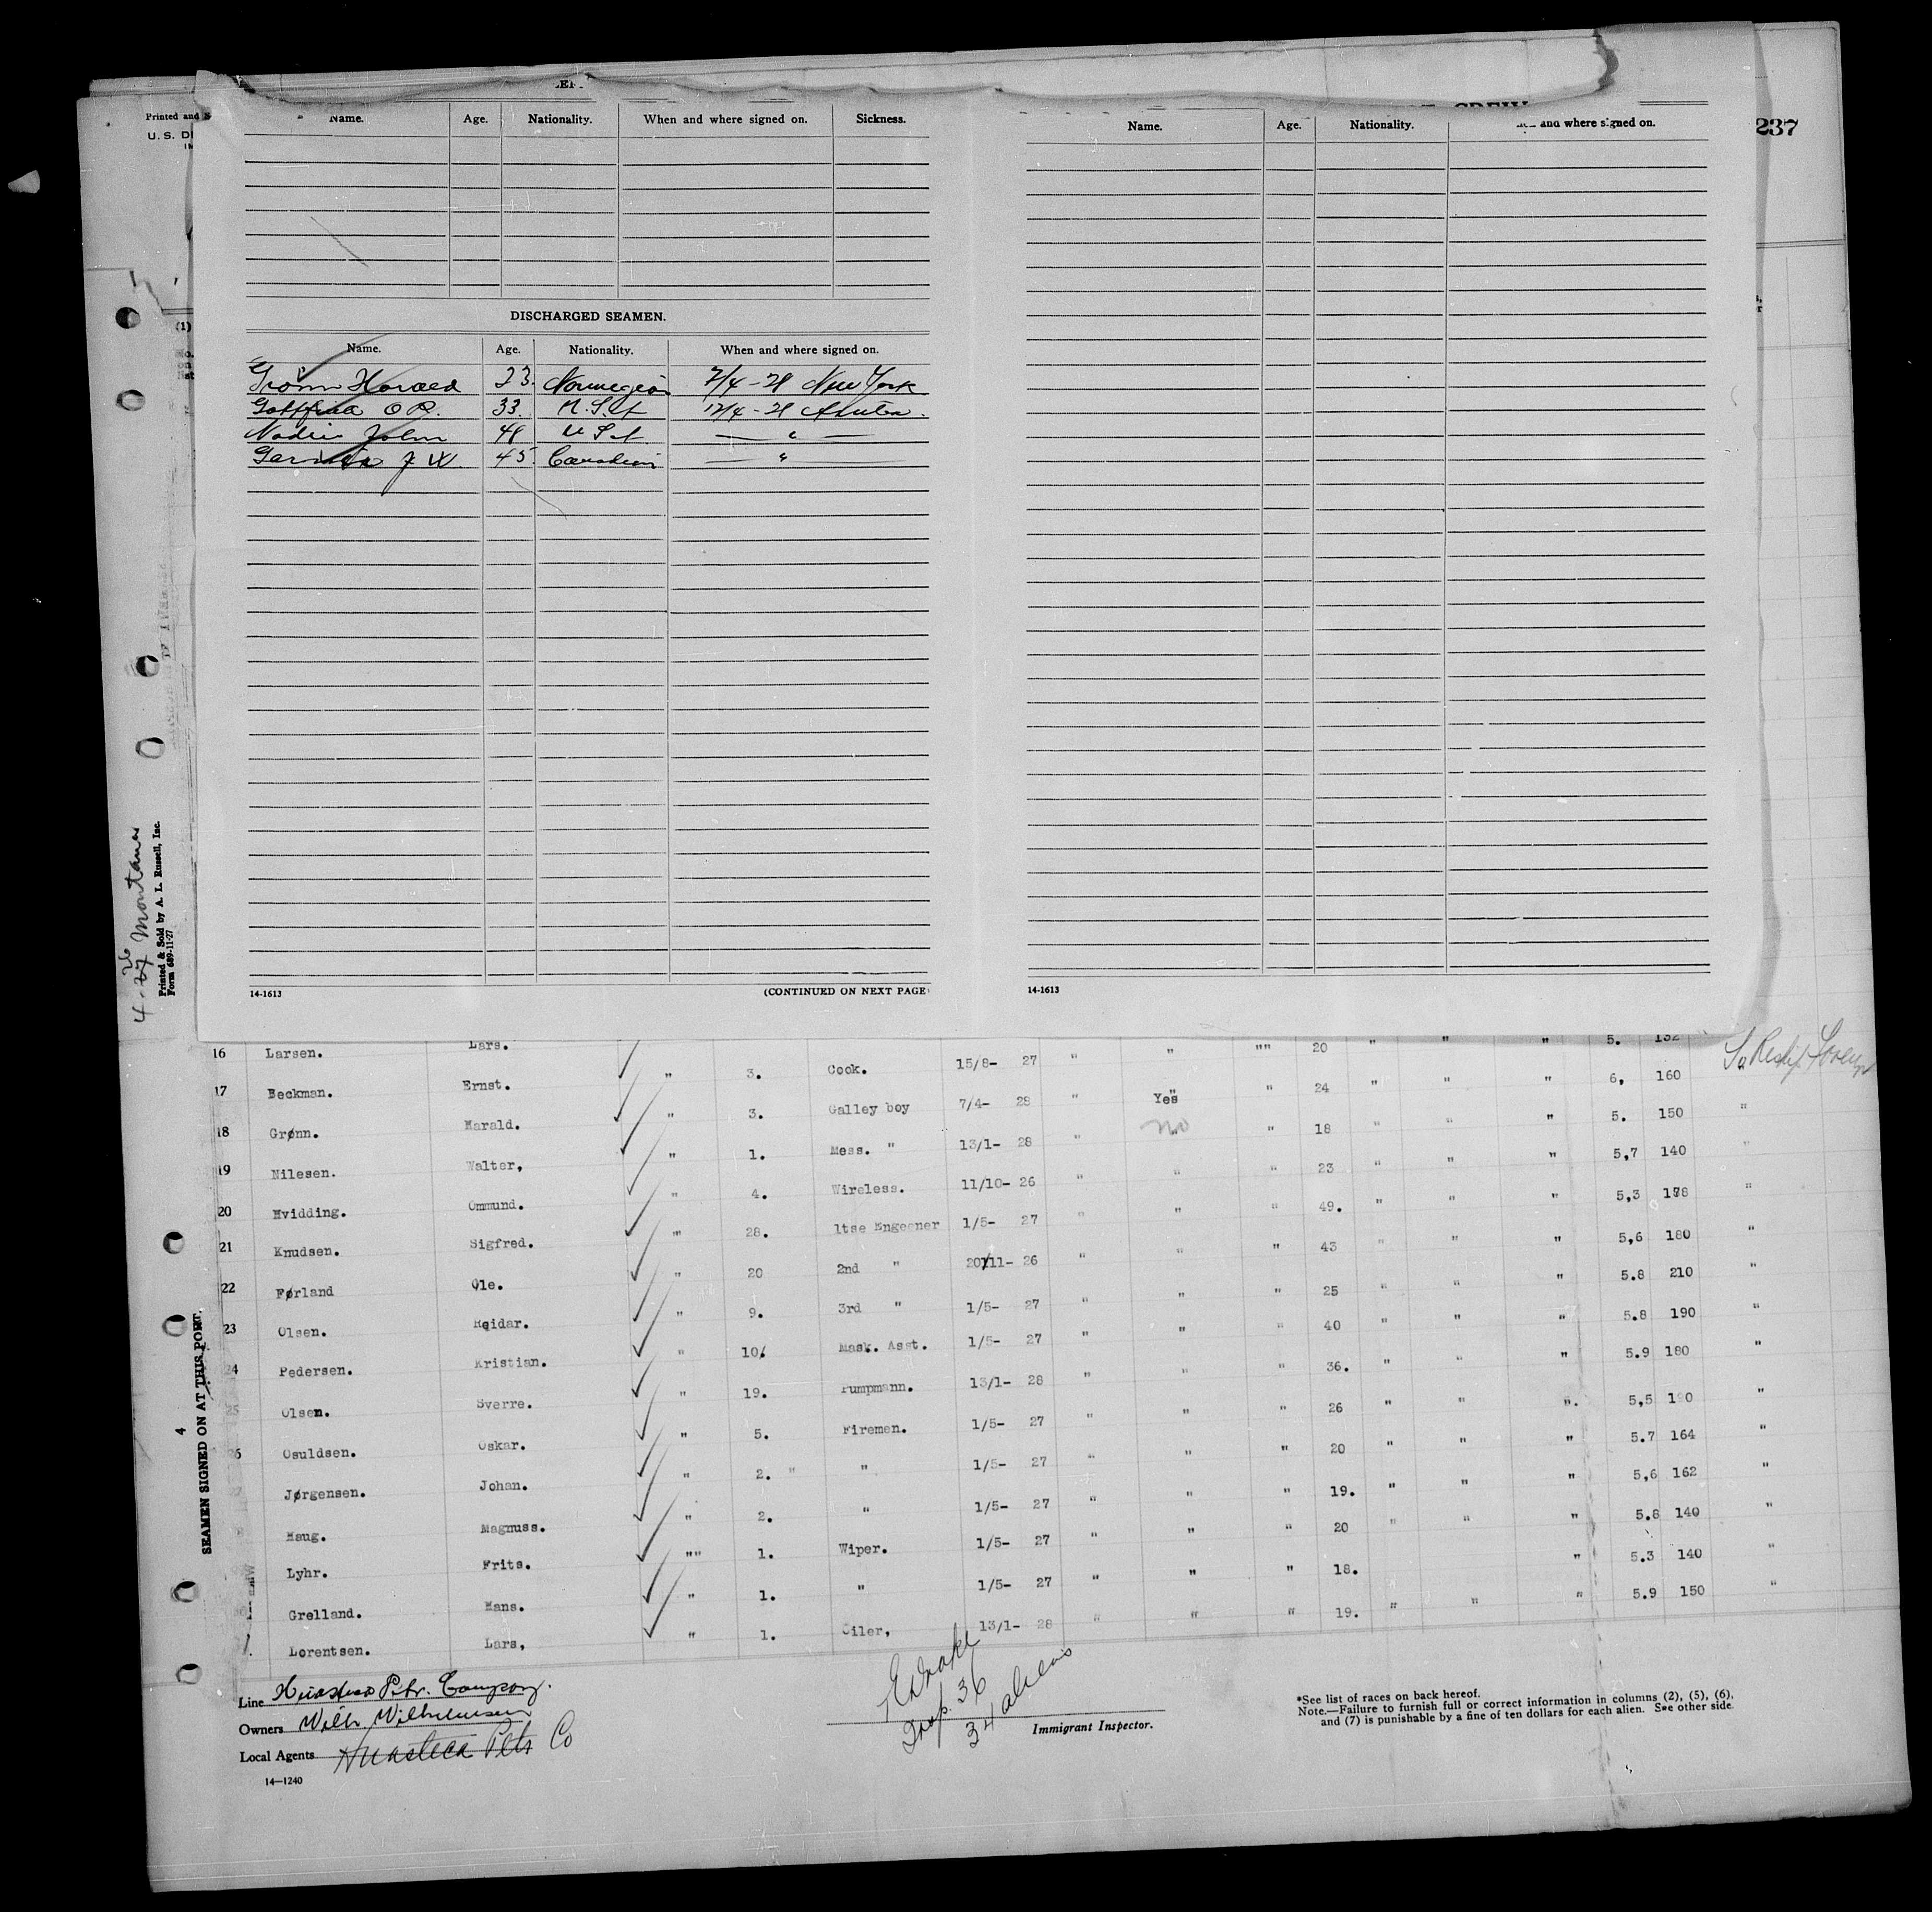 Printed and S
U. S. D
237
Name. Age. Nationality. When and where signed on. Sickness.
DISCHARGED SEAMEN.
Name. Age. Nationality. When and where signed on.
Grönn Harald 23. Norwegian 7/4-28 New York
Gottfried O R. 33. U.S.A 12/4-28
John 48 U S A — " —
J W. 45. Canadian — " —
14-1613 (CONTINUED ON NEXT PAGE
CREW
Name. Age. Nationality. and where signed on.
14-1613
4-26 Montana
Printed & Sold by A. L. Russell, Inc.
Form 689-11-27
4
SEAMEN SIGNED ON AT THIS PORT.
16 Larsen. Lars. " 3. Cook. 15/8- 27 " " "" 20 " " " 5. 132 To Reship Foreign
17 Beckman. Ernst. " 3. Galley boy 7/4- 28 " Yes " 24 " " " 6, 160 "
18 Grønn. Harald. " 1. Mess. " 13/1- 28 " no " 18 " " " 5. 150 "
19 Nilesen. Walter, " 4. Wireless. 11/10- 26 " " " 23 " " " 5,7 140 "
20 Hvidding. Ommund. " 28. 1tse Engeener 1/5- 27 " " " 49. " " " 5,3 178 "
21 Knudsen. Sigfred. " 20 2nd " 20/11- 26 " " " 43 " " " 5,6 180 "
22 Førland Ole. " 9. 3rd " 1/5- 27 " " " 25 " " " 5.8 210 "
23 Olsen. Reidar. " 10. Mask. Asst. 1/5- 27 " " " 40 " " " 5.8 190 "
24 Pedersen. Kristian. " 19. Pumpmann. 13/1- 28 " " " 36. " " " 5.9 180 "
25 Olsen. Sverre. " 5. Firemen. 1/5- 27 " " " 26 " " ". 5,5 "
26 Osuldsen. Oskar. " 2. " " 1/5- 27 " " " 20 " " " 5.7 164 "
Jørgensen. Johan. " 2. " 1/5- 27 " " " 19. " " " 5,6 162 "
Haug. Magnuss. "" 1. Wiper. 1/5- 27 " " " 20 " " " 5.8 140 "
Lyhr. Frits. " 1. " 1/5- 27 " " " 18. " 5.3 140 "
Grelland. Hans. " 1. Oiler, 13/1- 28 " " " 19. " " " 5.9 150 "
Lorentsen. Lars,
Line Huasteca Petr. Company.
Owners Wilh Wilhelmsen
Local Agents Huasteca Petr Co
14—1240
E Drake
Insp. 36
34 aliens
Immigrant Inspector.
*See list of races on back hereof.
Note.—Failure to furnish full or correct information in columns (2), (5), (6),
and (7) is punishable by a fine of ten dollars for each alien. See other side.